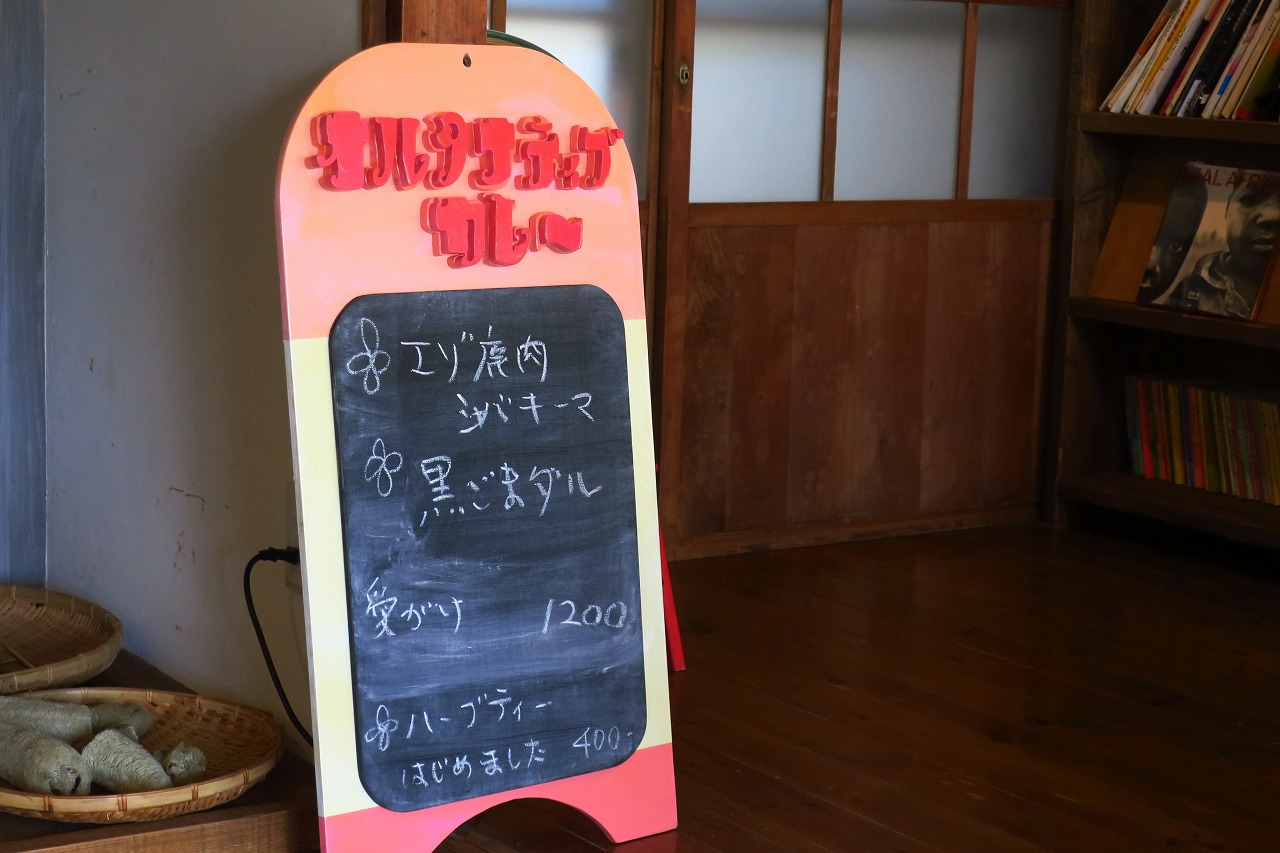 オルタナティブ
カレ〜
エゾ鹿肉
ジャバキーマ
黒ごまダル
愛がけ 1200
ハーブティー
はじめました 400-
AL AFR